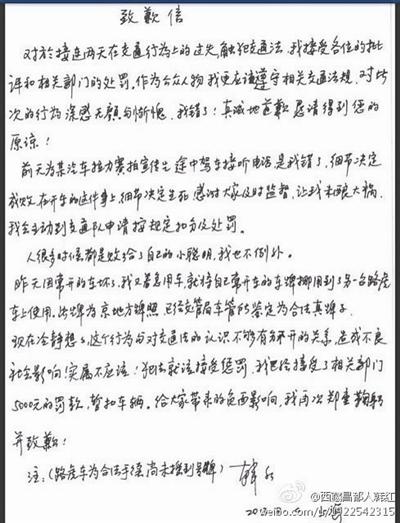 致歉信
对于接连两天在交通行为上的过失，触犯交通法，我接受各位的批
评和相关部门的处罚。作为公众人物我更应该遵守相关交通法规，对此
次的行为深感无颜与惭愧，我错了！真诚地道歉恳请得到您的
原谅！
前天为某汽车接力赛拍宣传，途中驾车接听电话是我错了，细节决定
成败，在开车的这件事上，细节决定生死，感谢大家及时监督，让我未酿大祸，
我会主动到交通队申请按规定扣分及处罚。
人很多时候都是败给了自己的小聪明，我也不例外。
昨天因常开的车坏了，我又着急用车，就将自己常开的车牌挪用到了另一台路虎
车上使用，此牌为京地方牌照，已经交管局车管所鉴定为合法真牌子。
现在冷静想想，这个行为与对交通法的认识不够有分不开的关系，造成不良
社会影响！实属不应该！犯法就该接受惩罚，我已经接受了相关部门
5000元的罚款，暂扣车辆。给大家带来的负面影响，我再次郑重鞠躬
并致歉！
注：（路虎车为合法手续尚未挂到号牌） 韩红
@西藏昌都人韩红